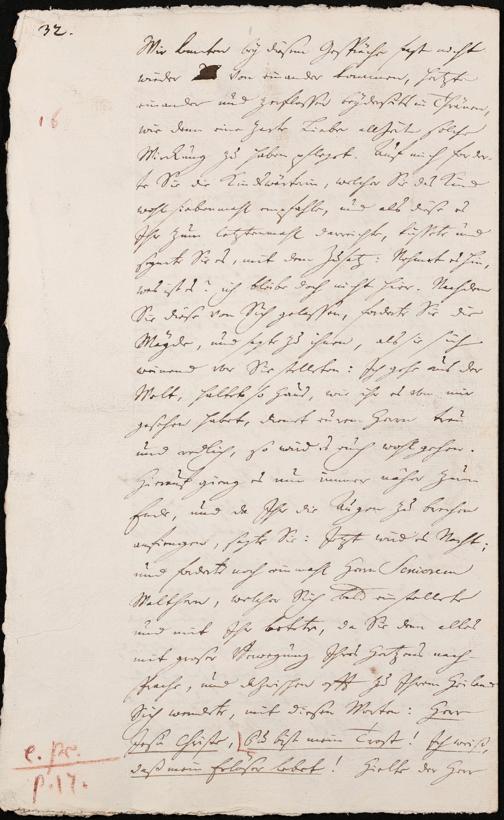 32.
Wir konten bey diesem Gespräche fast nicht
wieder von einander kommen, herzten
einander und zerflossen beyderseits in Thränen,
wie denn eine zarte Liebe allzeit solche
Wirckung zu haben pfleget. Auf mich forder-
te Sie die Kindwärterin, welcher Sie das Kind
wohl siebenmahl empfahle, und als diese es
Ihr zum letztenmahl darreichte, küssete und
segnete Sie es, mit dem Zusatz: Nehmet es hin,
was ist es? ich bleibe doch nicht hier. Nachdem
Sie diese von Sich gelassen, forderte Sie die
Mägde, und sagte zu ihnen, als sie sich
weinend vor Sie stelleten: Ich gehe aus der
Welt, haltet so Haus, wie ihr es von mir
gesehen habet, dienet euren Herrn treu
und redlich, so wird es euch wohl gehen.
Hierauf gieng es nun immer näher zum
Ende, und da Ihr die Augen zu brechen
anfiengen, sagte Sie: Jetzt wird es Nacht;
und forderte noch einmahl Herrn Seniorem
Walthern, welcher Sich bald einstellete
und mit Ihr betete, da Sie denn alles
mit großer Bewegung Ihres Hertzens nach
sprache, und dazwischen offt zu Ihrem Heiland
Sich wendete, mit diesen Worten: Herr
Jesu Christe, Du bist mein Trost! Ich weiß,
daß mein Erlöser lebet! Hielte der Herr
16
e. pr.
p. 17.